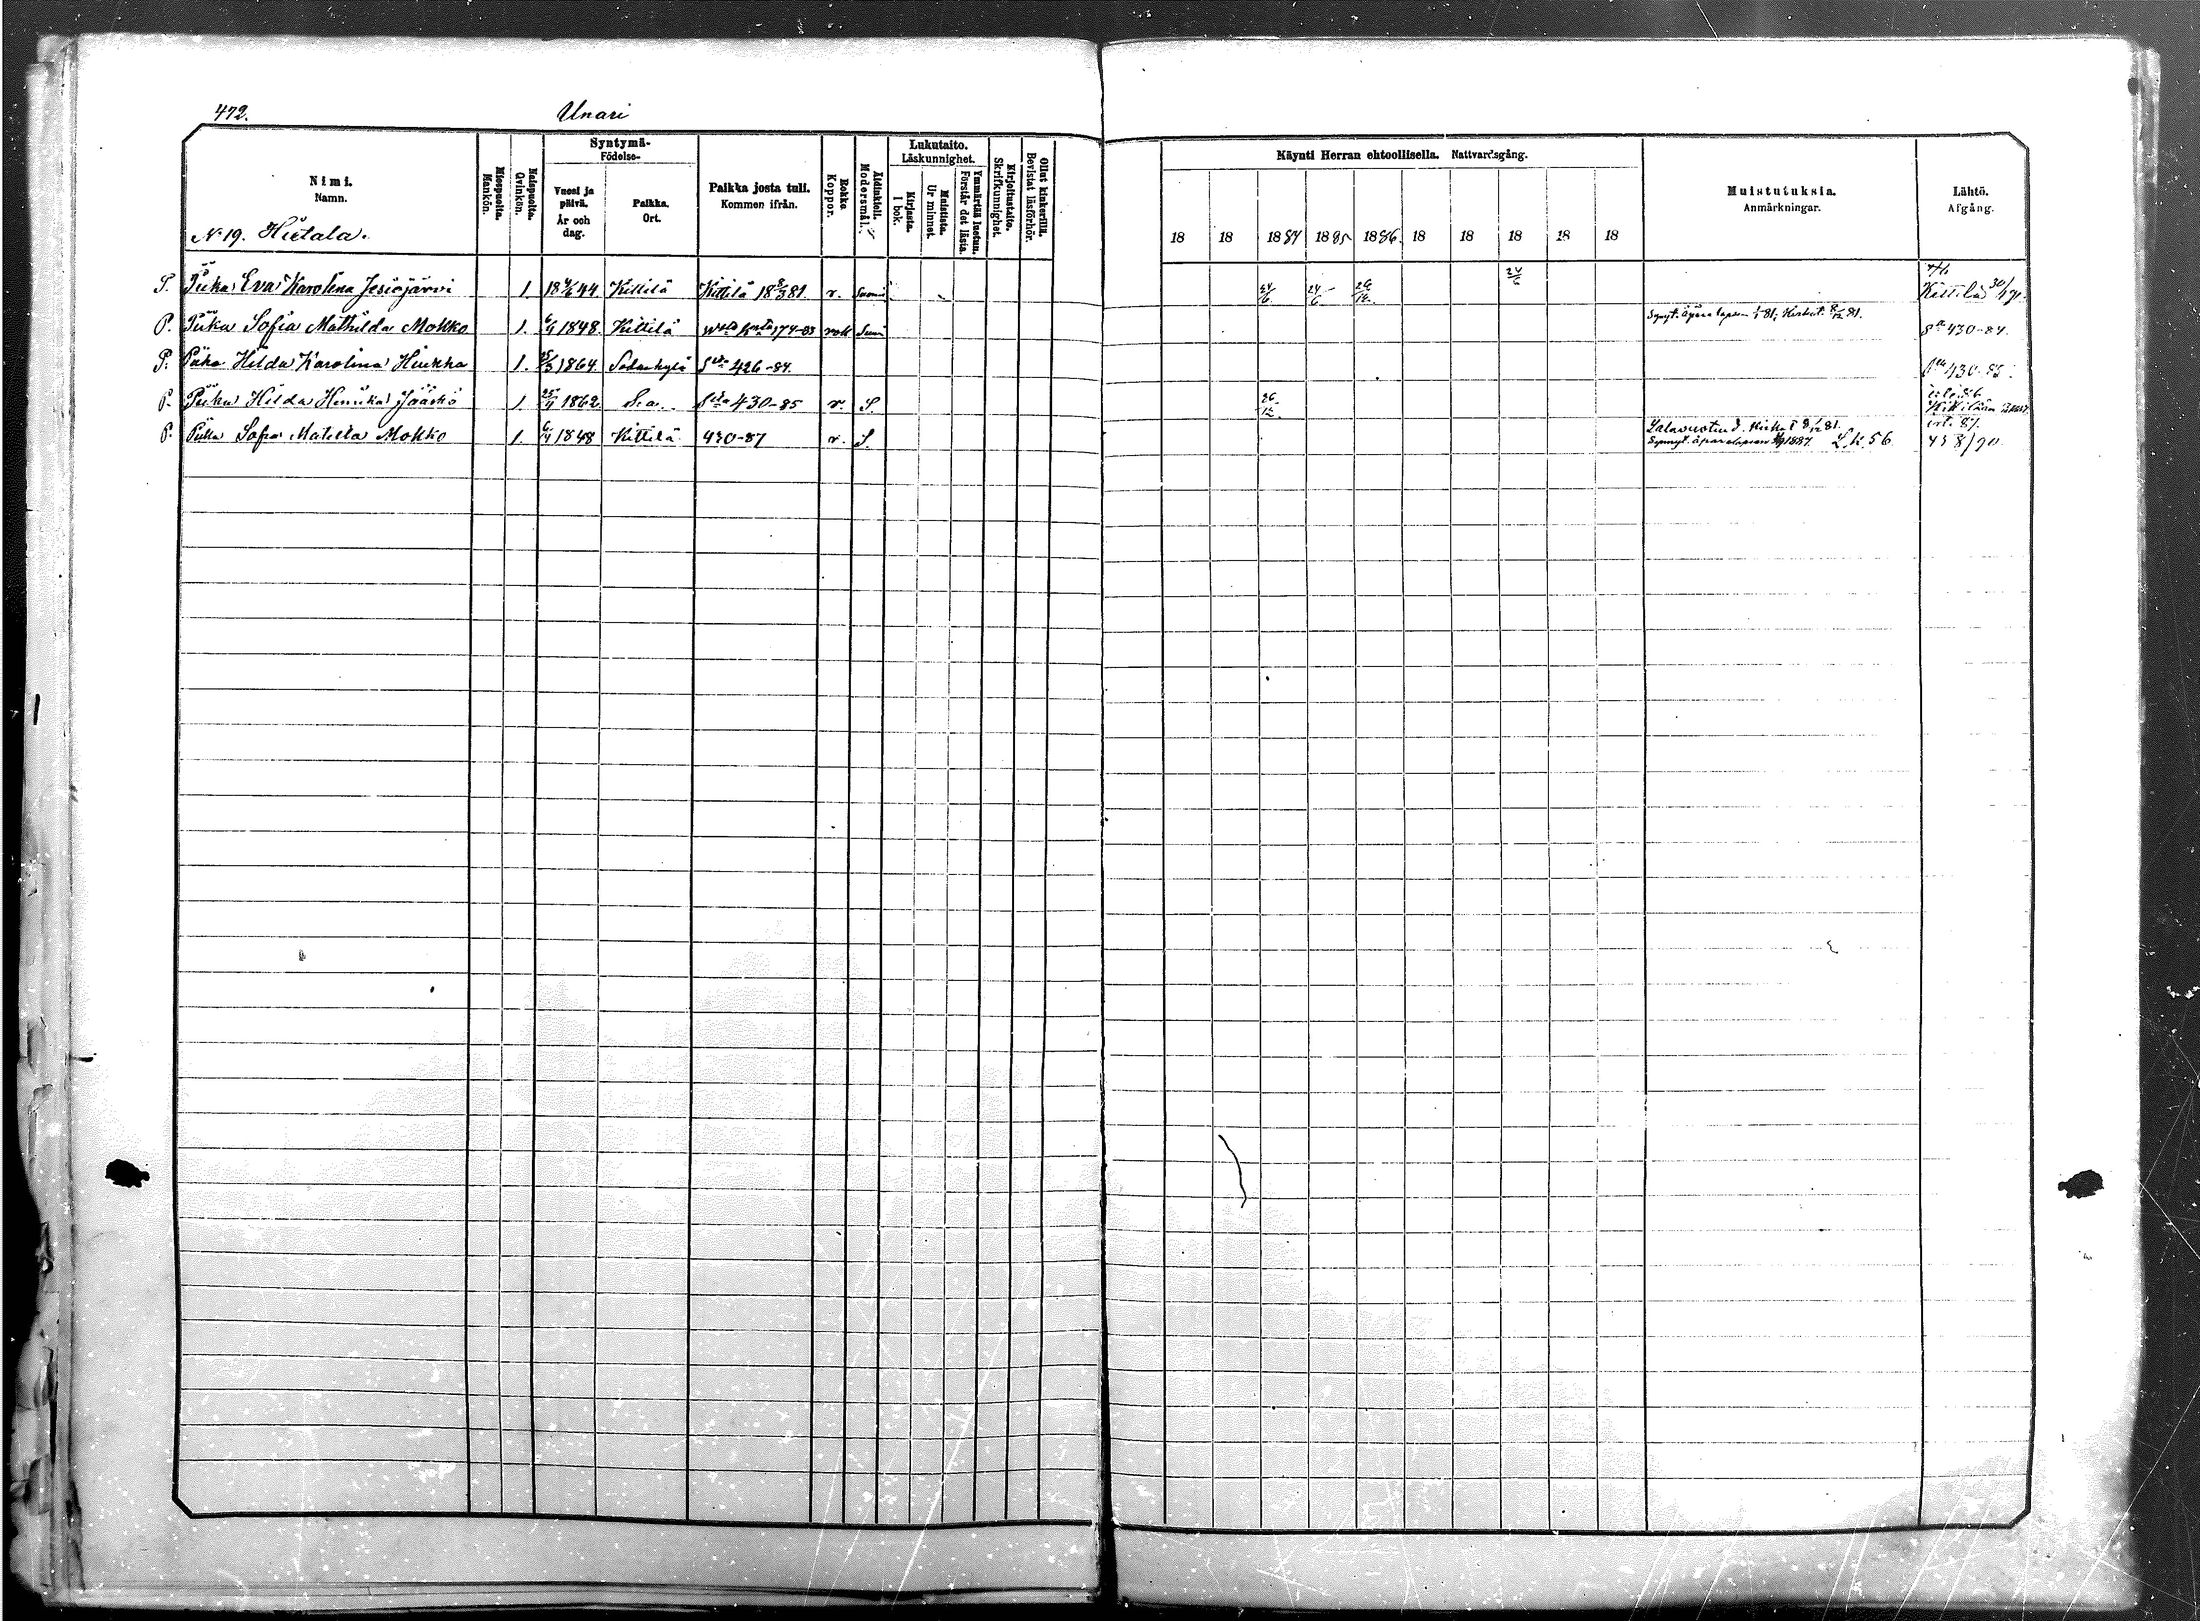 472. Unari
Nimi.
Namn.
Miespuolia.
Mankön.
Naispuolia.
Qvinkön.
Syntymä-
Födelse-
Vuosi ja päivä.
År och dag.
Paikka.
Ort.
Paikka josta tuli.
Kommen ifrån.
Rokko.
Koppor.
Äidinkieli.
Modersmål.
Lukutaito.
Läskunnighet.
Kirjasta.
I bok.
Muistista.
Ur minnet.
Ymmärtää luetun.
Förstår det lästa.
Kirjoitustaito.
Skrifkunnighet.
Ollut kinkerillä.
Bevistat läsförhör.
Käynti Herran ehtoollisella. Nattvardsgång.
18 18 1884 1885 1886 18 18 18 18 18
Muistutuksia.
Anmärkningar.
Lähtö.
Afgång.
No 19. Hietala.
P. Piika Eva Karolina Jesiöjärvi 1. 18 4/6 44 Kittilä Kittilä 18 8/3 81 r. Suomi 24/6 24/6 26/12 24/6 Kittilä 30/4 91.
P. Piika Sofia Mathilda Mokko 1. 6/4 1848. Kittilä 174-83 rok Suomi Synyt. äpärä lapsen 1/1 81; Kirkot. 8/12 81. 430-84.
P. Piika Hilda Karolina Hiukka 1. 1864. Sodankylä 426-84. 430-85.
P. Piika Hilda Henrika Jääskö 1. 25/4 1862 S:a 430-85 r. S. 26/12
P. Piika Sofia Matilda Mokko 1. 6/4 1848 Kittilä 430-87 r. S. Salavuoteud. Kirkot 8/12 81.
Synnyt. äpärälapsen 1887. L.k. 56. 458/90.